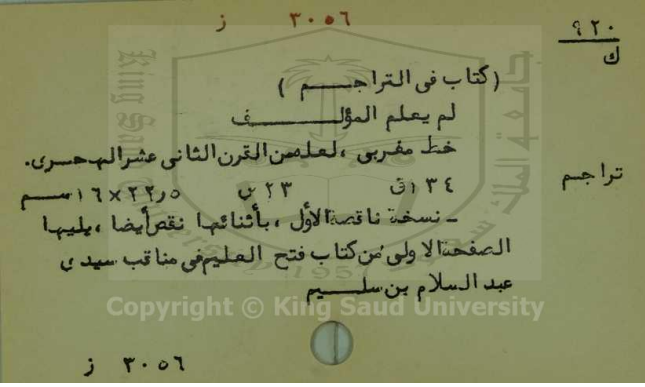 ٣٠٥٦ ز
٩٢٠
ك
(كتاب فى التراجـــم )
لم يعلم المؤلـــــــف
خط مغربى ، لعله من القرن الثانى عشر الهجرى.
تراجم
١٣٤ ق ٢٣ س ٢٢٫٥ × ١٦ ســم
ـ نسخة ناقصة الأول ، بأثنائها نقص أيضا ، يليها
الصفحة الاولى من كتاب فتح العليم فى مناقب سيدى
عبد السلام بن سلـــيم
Copyright © King Saud University
King Saud University
1957
٣٠٥٦ ز